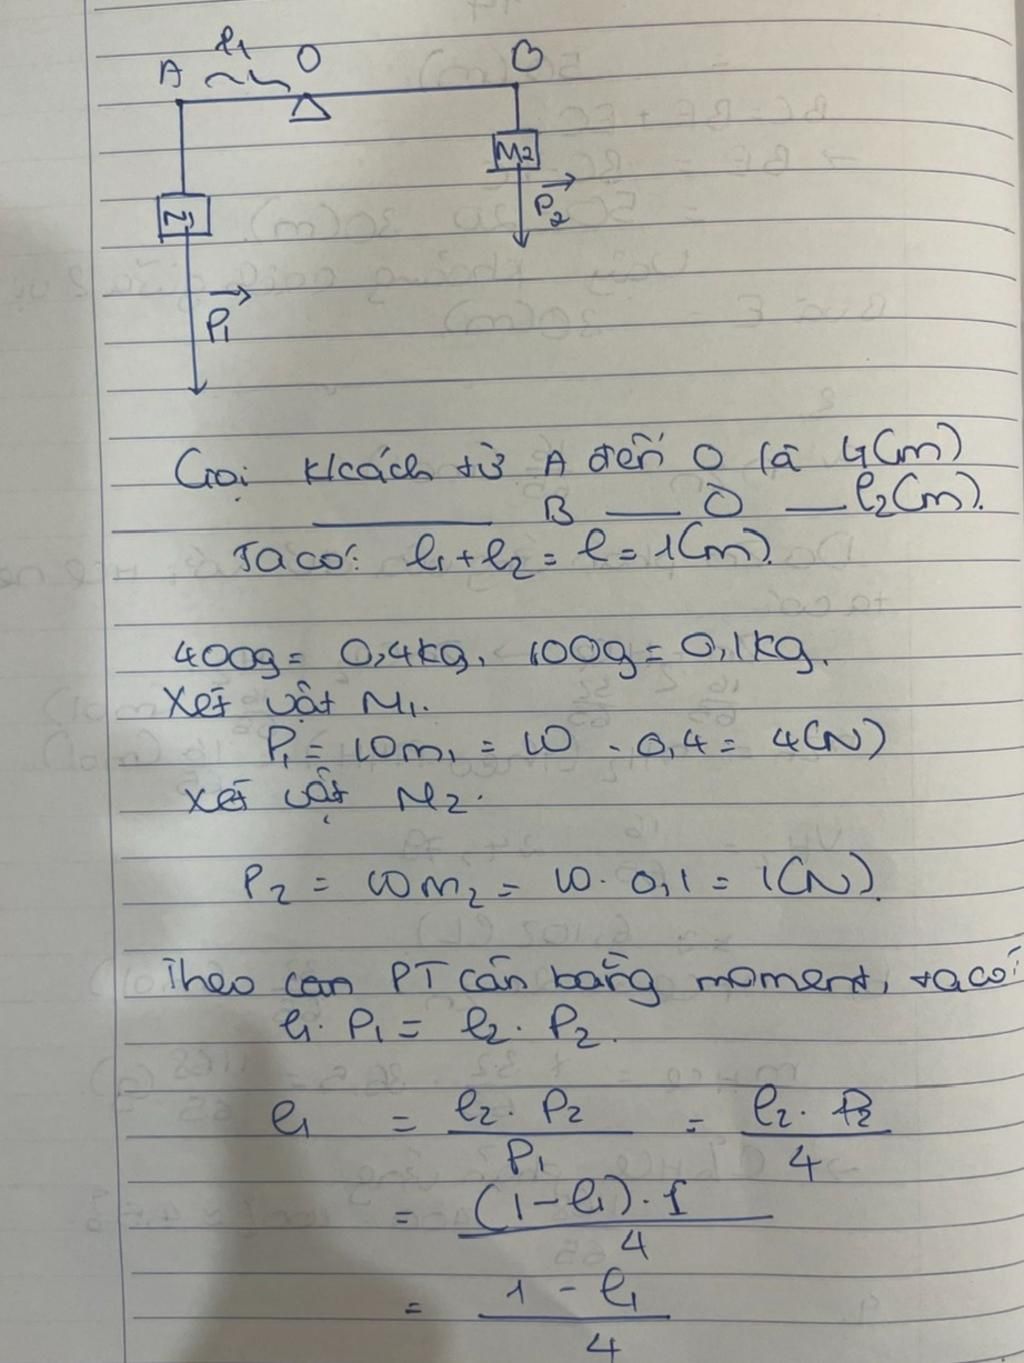 A l₁ O B
M₂
P₂
M₁
P₁
Gọi kcách từ A đến O là l₁(m)
B — O — l₂(m).
Ta có: l₁ + l₂ = l = 1(m).
400g = 0,4kg, 100g = 0,1kg.
Xét vật M₁.
P₁ = 10m₁ = 10 . 0,4 = 4(N)
Xét vật M₂.
P₂ = 10m₂ = 10 . 0,1 = 1(N).
Theo can PT cân bằng moment, ta có:
l₁ . P₁ = l₂ . P₂.
l₁ = l₂ . P₂ / P₁ = l₂ . P₂ / 4
= (1 - l₁) . 1 / 4
= 1 - l₁ / 4